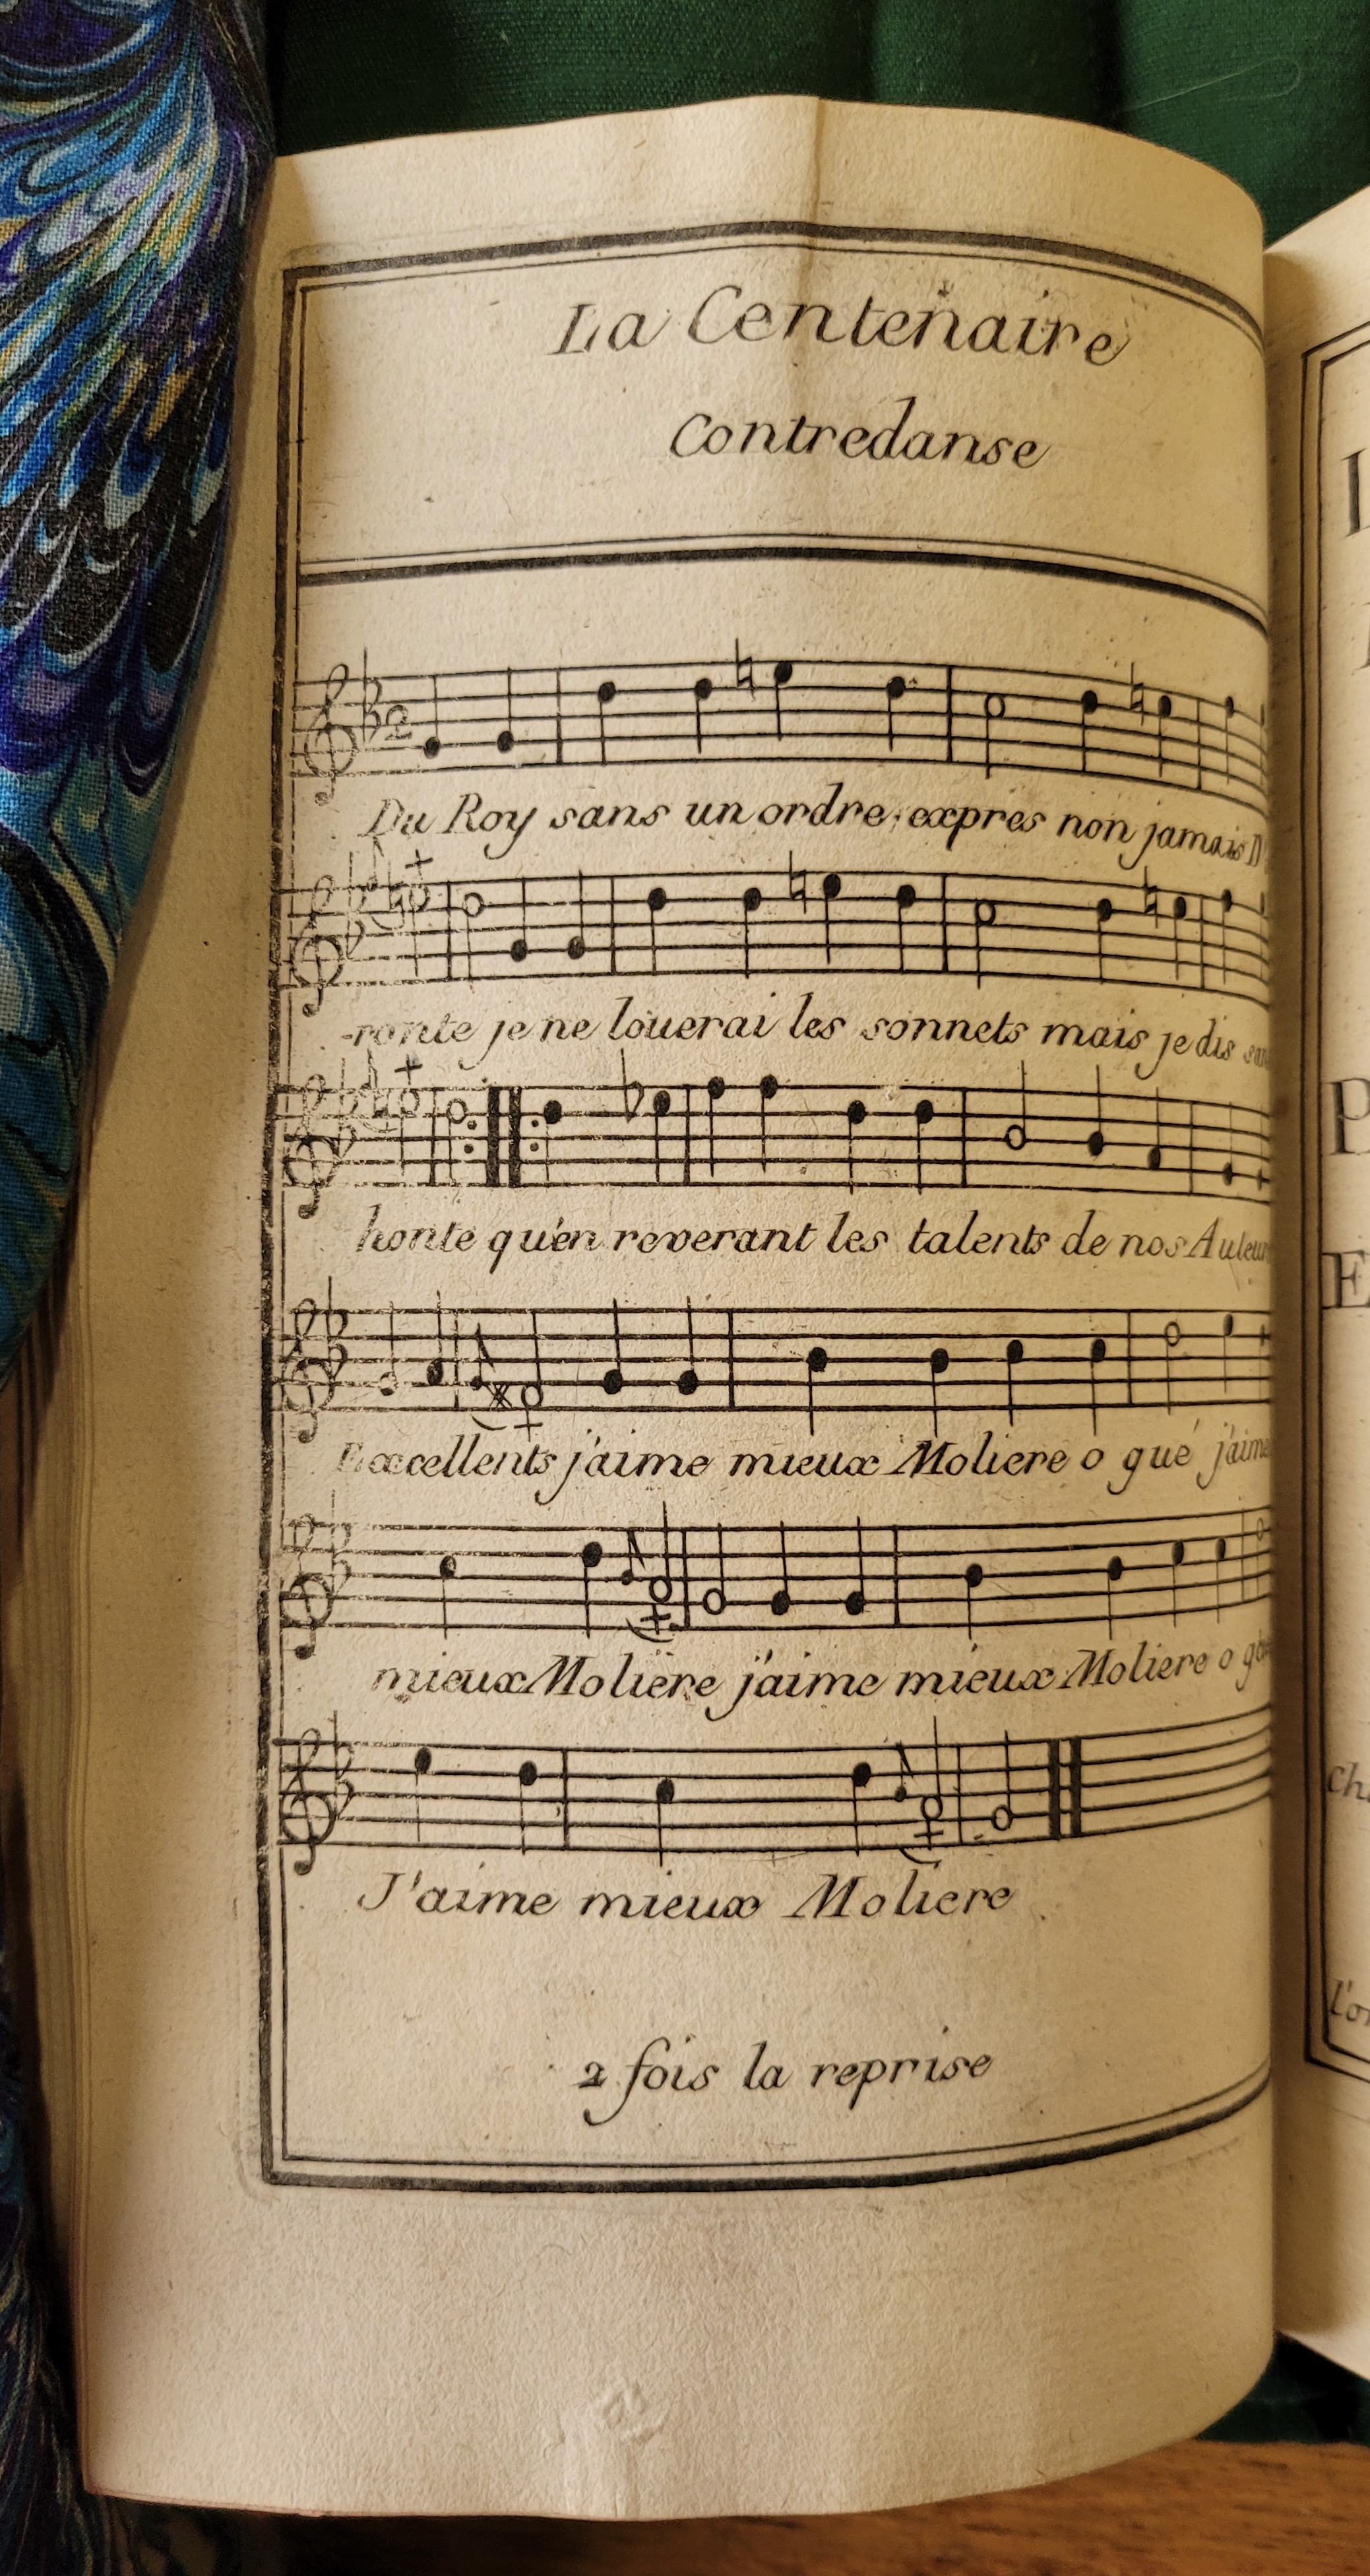 La Centenaire
Contredanse
Du Roy sans un ordre exprès non jamais
-ronte je ne loüerai les sonnets mais je dis
honte qu'en reverant les talents de nos
Excellents j'aime mieux Moliere o gué j'aime
mieux Moliere j'aime mieux Moliere o
J'aime mieux Moliere
2 fois la reprise